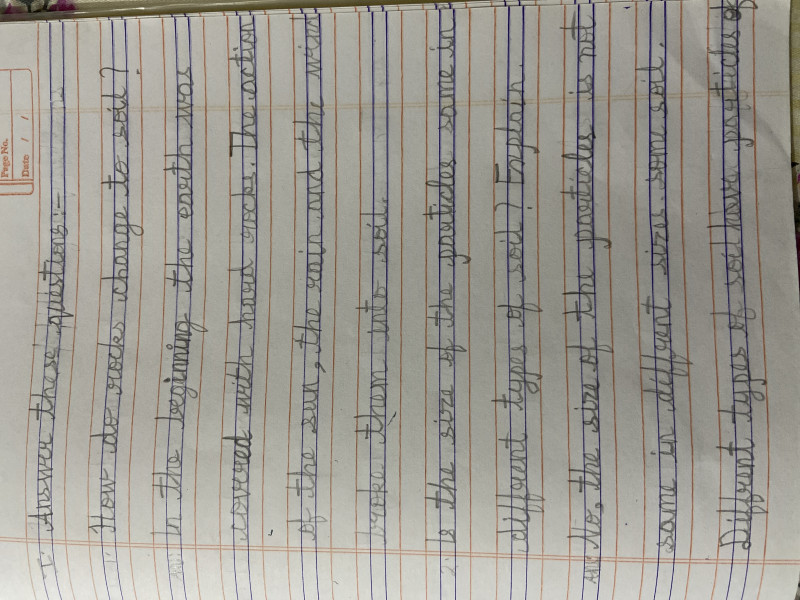 Page No.
Date / /
I. Answer these questions:-
1. How do rocks change to soil?
Ans: In the beginning the earth was
covered with hard rocks. The action
of the sun, the rain and the win
broke them into soil.
2. Is the size of the particles same in
different types of soil? Explain.
Ans No, the size of the particles is not
same in different sizes. some soil.
Different types of soil have particles of